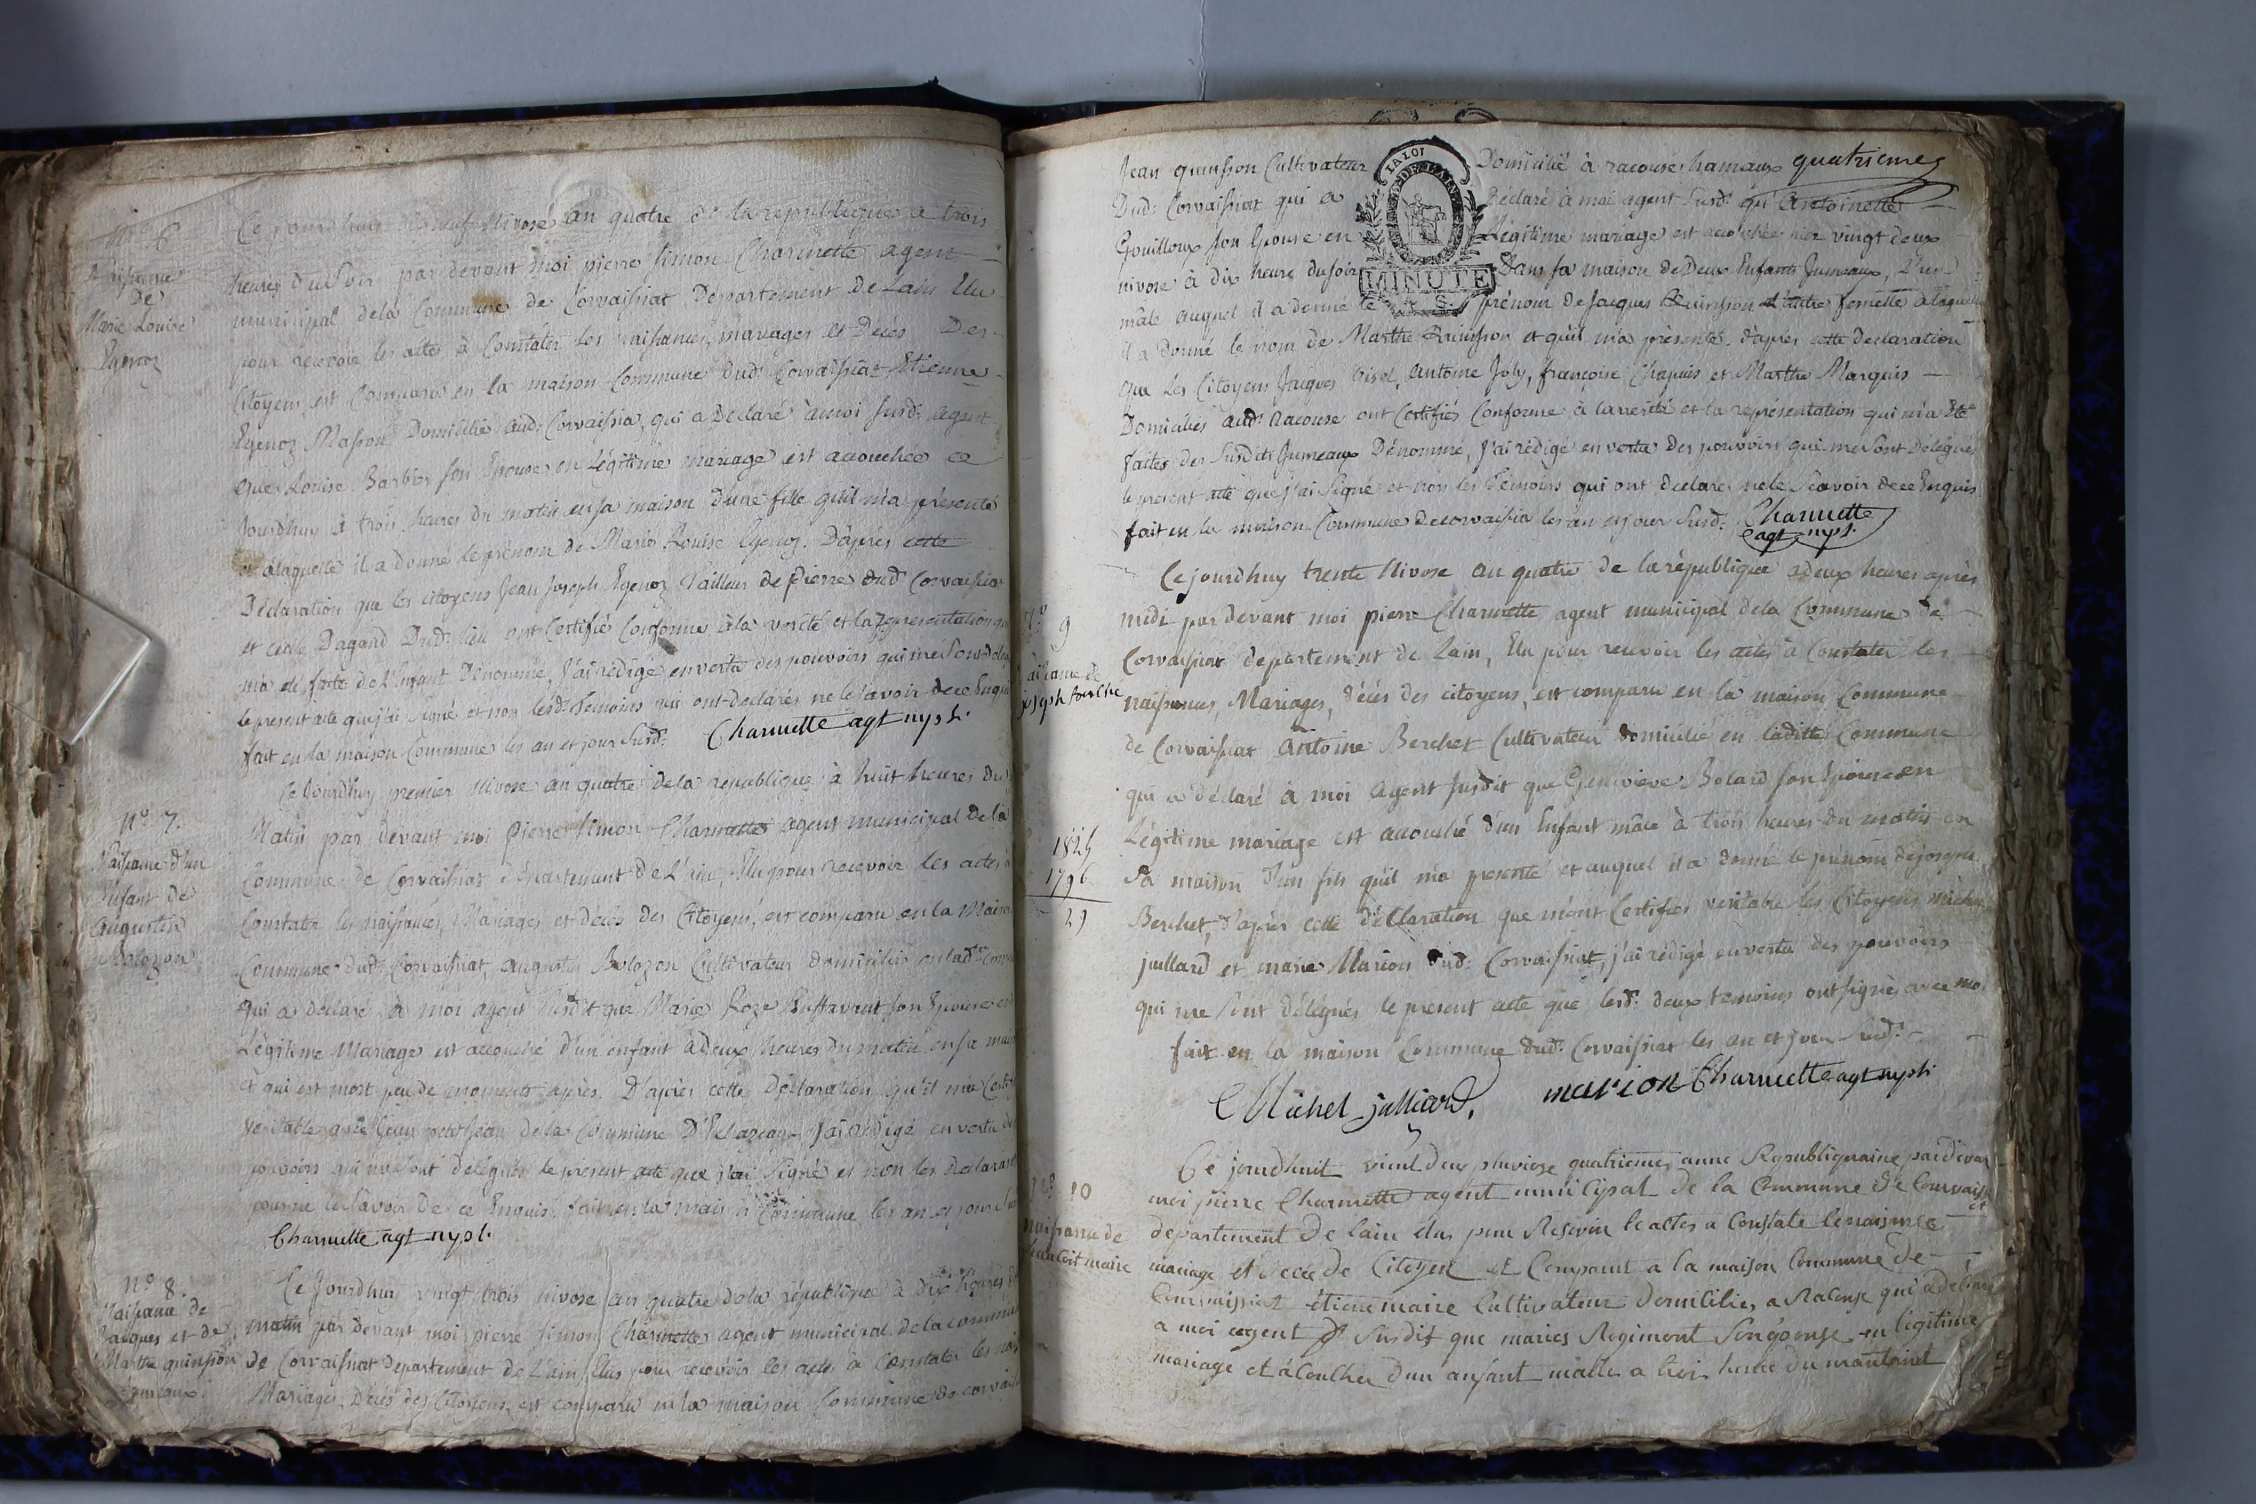 N.o 6
Naissance
de
Marie Louise
Egenoz
Ce jourdhuy neuf Nivose an quatre de la republique à trois
heures du Soir par devant moi pierre simon Charmette agent
municipal dela Commune de Corvaissiat Departement de Lain Elu
pour recevoir les actes à Constater les naissances, mariages et Décès Des
Citoyens, est Comparu en la maison Commune dud. Corvaissiat Etienne
Egenoz Masson Domicilié aud. Corvaissia, qui a Declaré à moi susd. agent
que Louise Barbier son Epouse en Légitime mariage est accouchée ce
Jourdhuy à trois heures du matin en sa maison d'une fille qu'il m'a présenté
et alaquelle il a donné le prénom de Marie Louise Egenoz. D'après cette
Déclaration que les citoyens Jean Joseph Egenoz Tailleur de Pierre dud. Corvaissia
et Dagand Dud. lieu ont Certifié Conforme à la vérité et la representation qui
m'a été faite de l'Enfant Dénommé, J'ai redigé en vertu des pouvoirs qui me sont
le present acte que j'ai Signé et non lesd. Temoins qui ont Declarés ne le savoir de ce Enquis
fait en la maison Commune les an et jour Susd. Charmette agt mpl.
n.o 7.
Naissance d'un
Enfant de
Augustin
Bolozon
Ce Jourdhuy premier Nivose an quatre de la republique à huit heures du
Matin par devant moi Pierre Simon Charmette agent municipal de la
Commune de Corvaissiat Département de L'ain, Elu pour recevoir les actes à
Constater les naissances, Mariages et décès des Citoyens, est comparu en la Maison
Commune dud. Corvaissiat, augustin Bolozon Cultivateur domicilié en lad.
qui a déclaré à moi agent susdit que Marie Roze son Epouse en
Légitime Mariage est accouché d'un enfant à deux heures du matin en sa
et qui est mort peu de moments après. D'après cette Déclaration qu'il m'a
véritable avec de la Commune j'ai rédigé en vertu des
pouvoirs qui me sont délégués le present acte que j'ai Signé et non les déclarants
pour ne le savoir de ce Enquis. fait en la maison Commune les an et jour
Charmette agt mpl.
n.o 8.
Naissance de
Jacques et de
Marthe quinsson
jumeaux.
Ce Jourdhuy vingt trois nivose an quatre de la république à dix heures
matin par devant moi pierre simon Charmette agent municipal de la commune
de Corvaissiat departement de L'ain Elus pour recevoir les actes à Constater les
Mariages, Décès des Citoyens est comparu en la maison Commune de
Jean quinsson Cultivateur Domicilié à racouse hamaux quatrieme
Dud. Corvaissiat qui a Déclaré à moi agent Susd. qu'Antoinette
Gouilloux son Epouse en Légitime mariage est accouchée hier vingt deux
nivose à dix heure du soir Dans sa maison de Deux Enfants Jumeaux, L'un
mâle auquel il a donné le prénom de Jacques Quinsson et l'autre femelle à laquelle
il a donné le nom de Marthe Quinsson et qu'il m'a présenté. d'après cette declaration
que Les Citoyens Jacques Antoine Joly, francoise Chapuis et Marthe Marquis
Domiciliés aud. Racouse ont Certifiés Conforme à la vérité et la représentation qui m'a Eté
faites des Susdits Jumeaux Dénommé, J'ai rédigé en vertu Des pouvoirs qui me sont Délégués
le present acte que j'ai Signé et non les Temoins qui ont declaré ne le Scavoir de ce Enquis
fait en la maison Commune de corvaissia les an et jour Susd. Charmette
agt mpl.
LA LOI
MINUTE
n.o 9
naissance de
joseph berchet
1825
1796
29
Ce jourdhuy trente Nivose an quatre de la république a deux heures après
midi par devant moi pierre Charmette agent municipal dela Commune de
Corvaissiat departement de Lain, Elu pour recevoir les actes à Constater les
naissances, Mariages, Décès des citoyens, est comparu en la maison Commune
de Corvaissiat Antoine Berchet Cultivateur domicilié en laditte Commune
qui a déclaré à moi Agent susdit que Genevieve Bolard son Epouse en
Légitime mariage est accouché d'un Enfant mâle à trois heures du matin en
Sa maison d'un fils qu'il m'a presenté et auquel il a donné le prénom de joseph
Berchet, d'après cette déclaration que m'ont Certifiés véritable les Citoyens michel
juillard et marie Marion dud. Corvaissiat, j'ai rédigé en vertu des pouvoirs
qui me sont délégués le present acte que lesd. deux temoins ont signé avec moi
fait en la maison Commune dud. Corvaissiat les an et jour susd.
Michel julliard. marion Charmette agt mpl
n.o 10
naissance de
maire
Ce jourdhuit vient deux pluviose quatriemes anne Republiquaine par devan
moi pierre Charmette agent municipal de la Commune de Courvaissiat
departement de lain elus pour Resevoir le actes a Constate lenaismes et
mariage et decee de Citoyen et Comparut a la maison Commune de
Courvaissiat étiene maire Cultivateur domicilies a Racouse qui a declare
a moi agent susdit que maries Regimont son épouse en legitime
mariage et acoulhee dun anfant malle a troi heure du mantoint